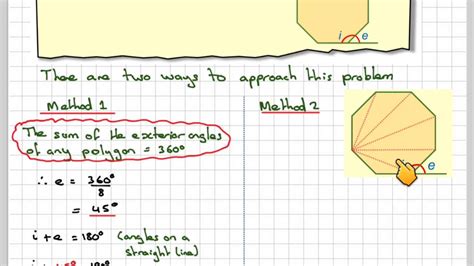 i e
There are two ways to approach this problem
Method 1
Method 2
The sum of the exterior angles
of any polygon = 360°
∴ e = 360°
8
= 45°
i e
i + e = 180° (angles on a
straight line)